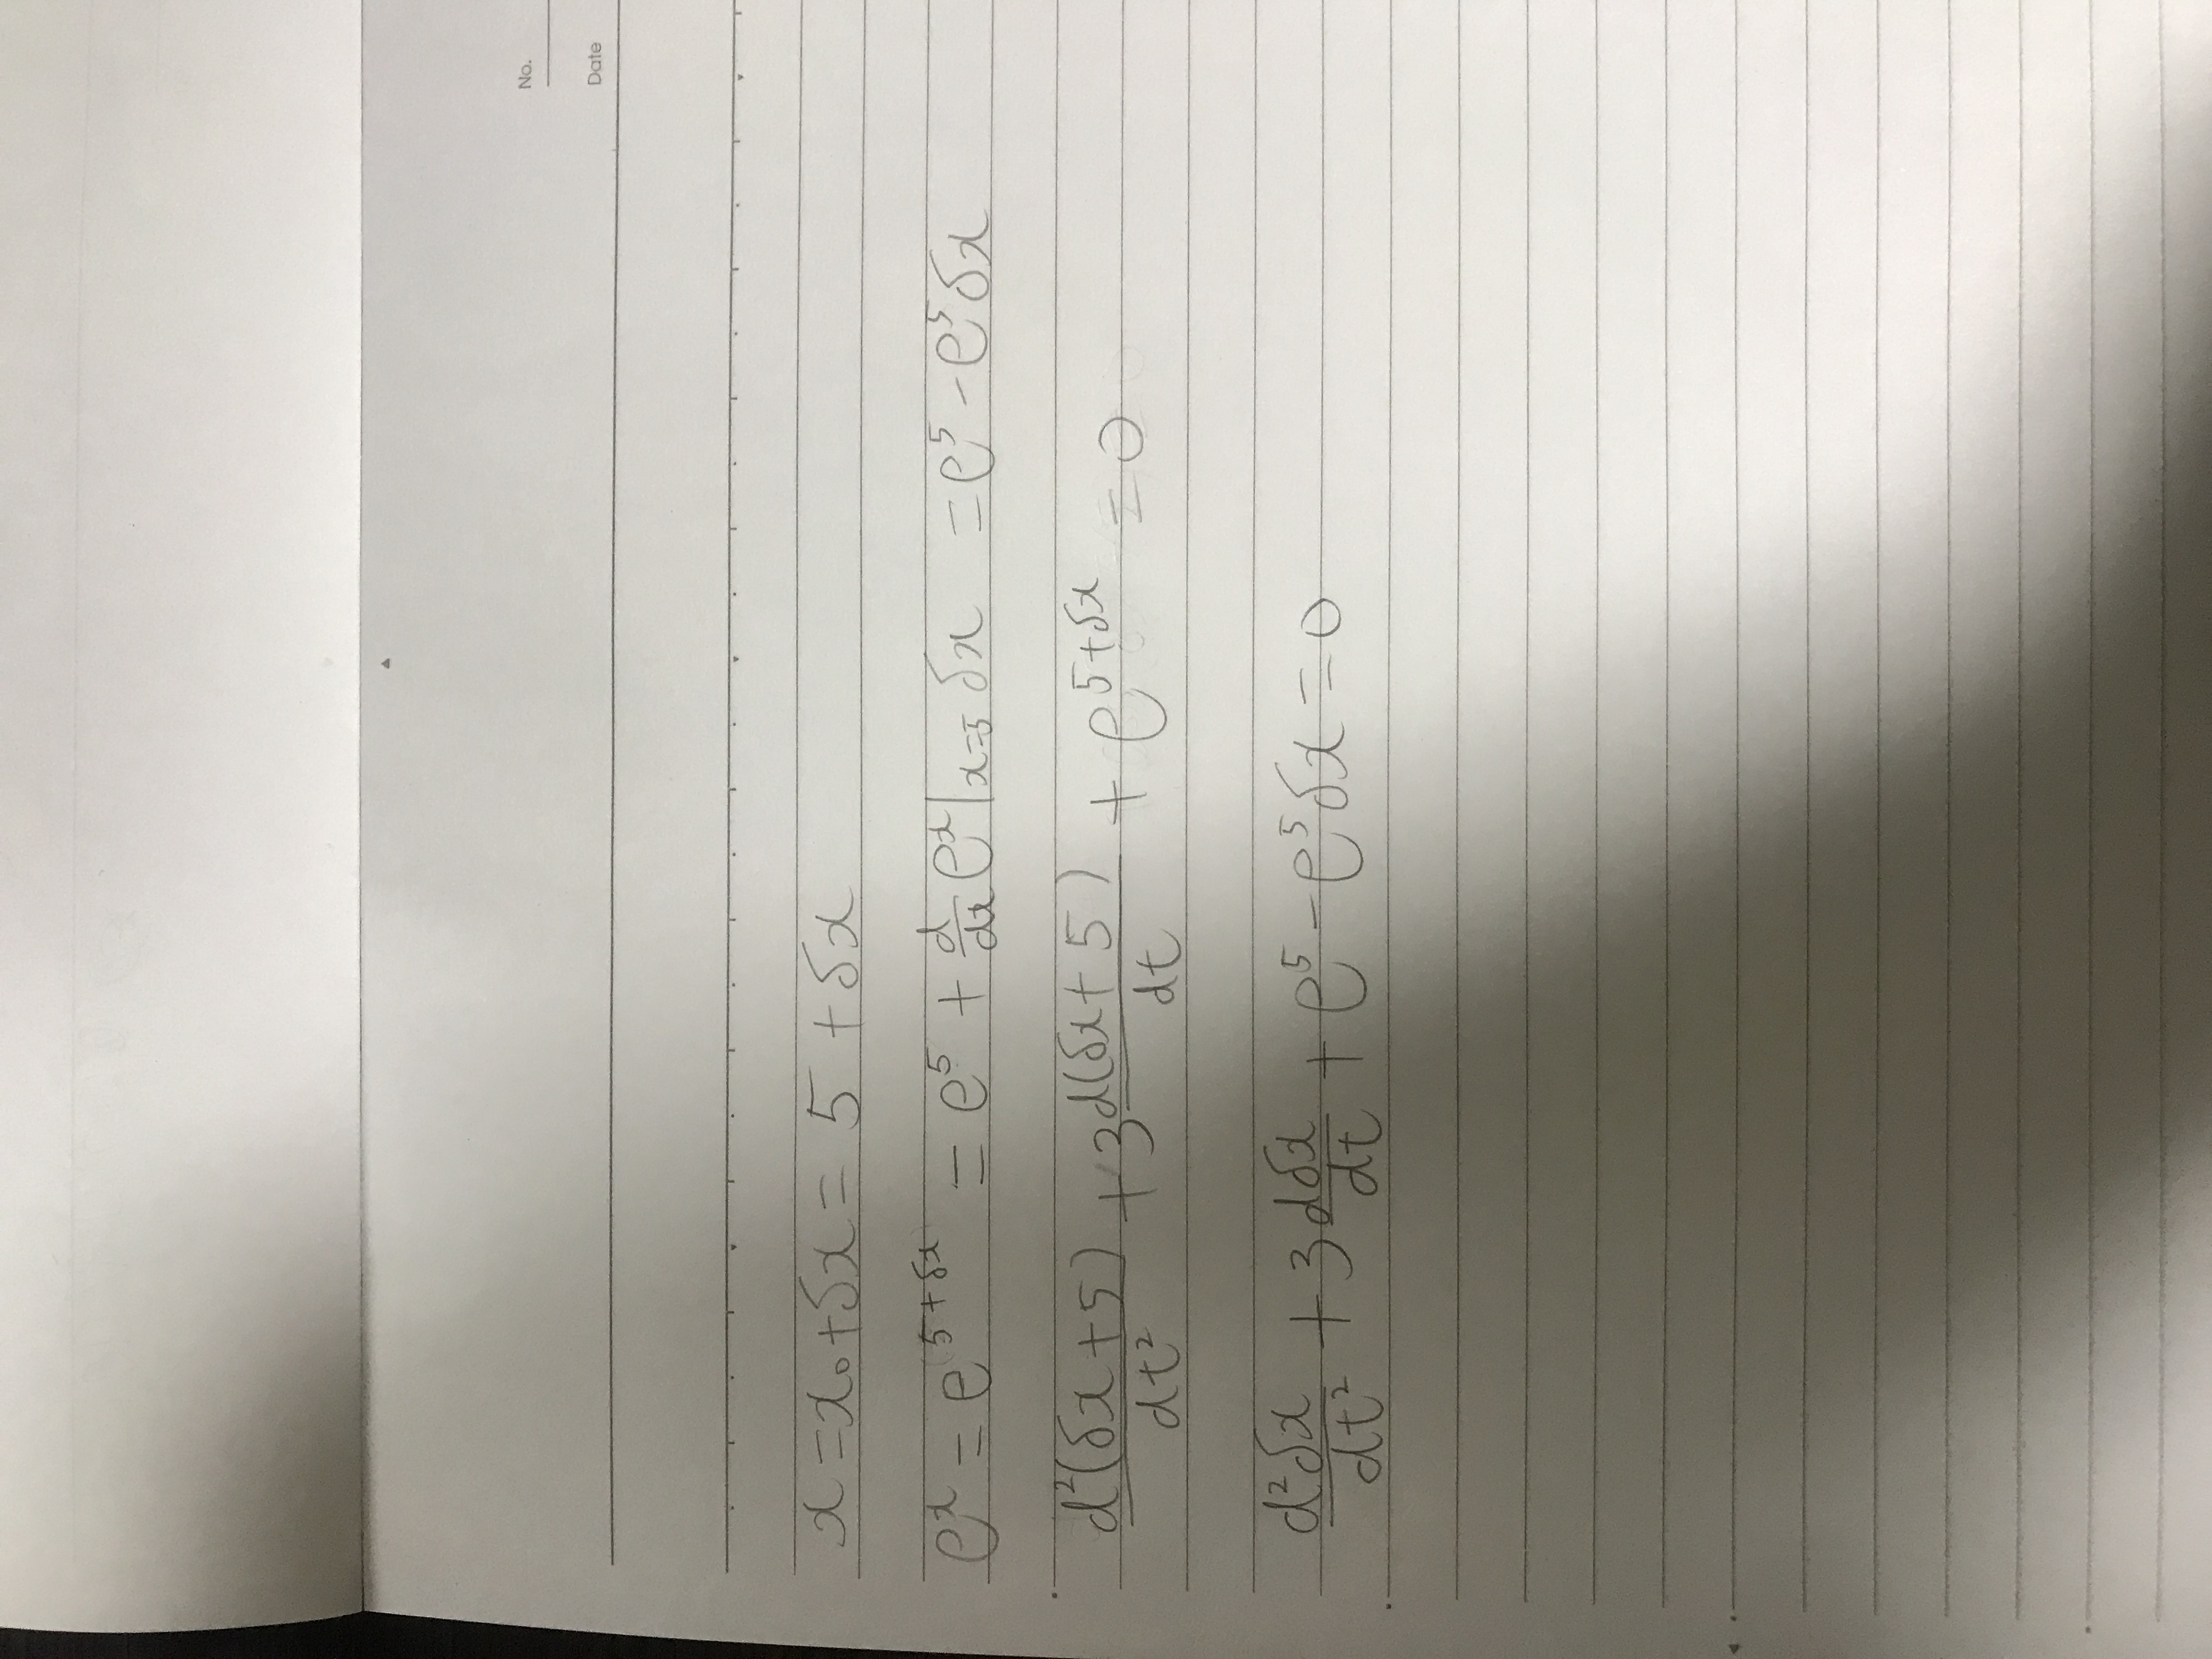 No.
Date
x = x₀ + δx = 5 + δx
eˣ = e^(5+δx) = e⁵ + d/dx eˣ|ₓ₌₅ δx = e⁵ − e⁵δx
d²(δx+5)/dt² + 3 d(δx+5)/dt + e^5+δx = 0
d²δx/dt² + 3 dδx/dt + e⁵ − e⁵δx = 0